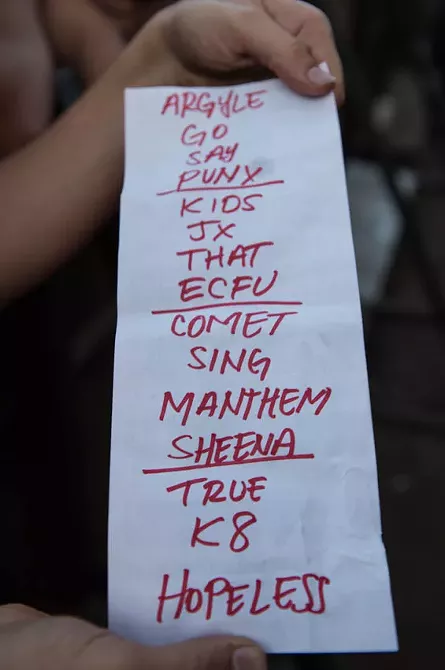 ARGYLE
GO
SAY
PUNX
KIDS
JX
THAT
ECFU
COMET
SING
MANTHEM
SHEENA
TRUE
K8
HOPELESS